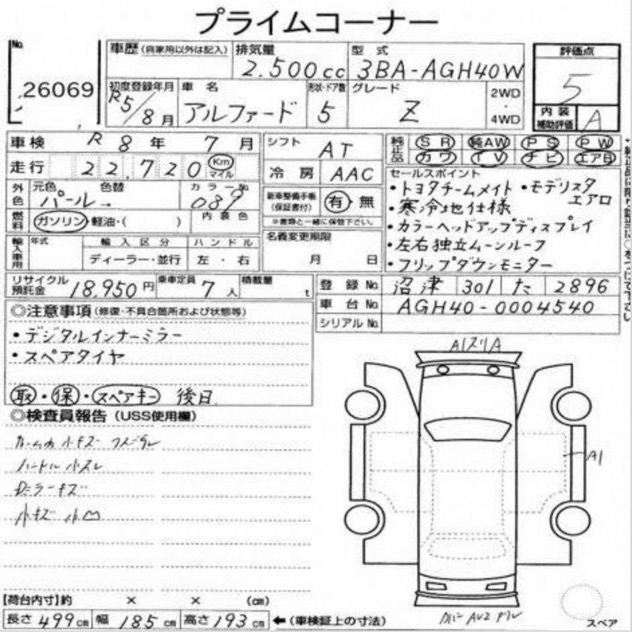 プライムコーナー
No.
26069
車歴 (自家用以外は記入)
排気量
2.500cc
型式
3BA-AGH40W
評価点
5
初度登録年月
R5/8月
車名
アルファード
形状・ドア数
5
グレード
Z
2WD
・
4WD
内装
補助評価
A
車検 R 8年 7月
シフト
AT
純正品
SR 純AW PS PW
カワ TV ナビ エアB
走行 22,720 Km マイル
冷房
AAC
セールスポイント
・トヨタチームメイト・モデリスタ
エアロ
・寒冷地仕様
・カラーヘッドアップディスプレイ
・左右独立ムーンルーフ
・フリップダウンモニター
外色
元色 色替
パール→
カラーNo.
089
新車整備手帳
(保証書付)
有・無
※書類と一緒に保管下さい。
燃料
ガソリン・軽油・( )
内装色
輸入車用
年式
輸入区分
ハンドル
ディーラー・並行
左・右
名義変更期限
月 日
リサイクル
預託金
18,950円
乗車定員
7人
積載量
t
登録No.
沼津 301 た 2896
車台No.
AGH40-0004540
シリアルNo.
◎注意事項(修復・不具合箇所および状態等)
・デジタルインナーミラー
・スペアタイヤ
取・保・スペアキー 後日
◎検査員報告(USS使用欄)
ハンドル小スレ
小キズ 小凹
A1
スペア
【荷台内寸】約 × × (cm)
長さ499cm 幅185cm 高さ193cm ←(車検証上の寸法)